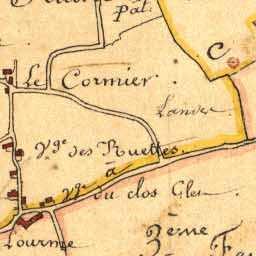 pat.
C
Le Cormier
Landes
Vge. des Ruettes
à
Vge. du clos Gles
3ème
Lourme